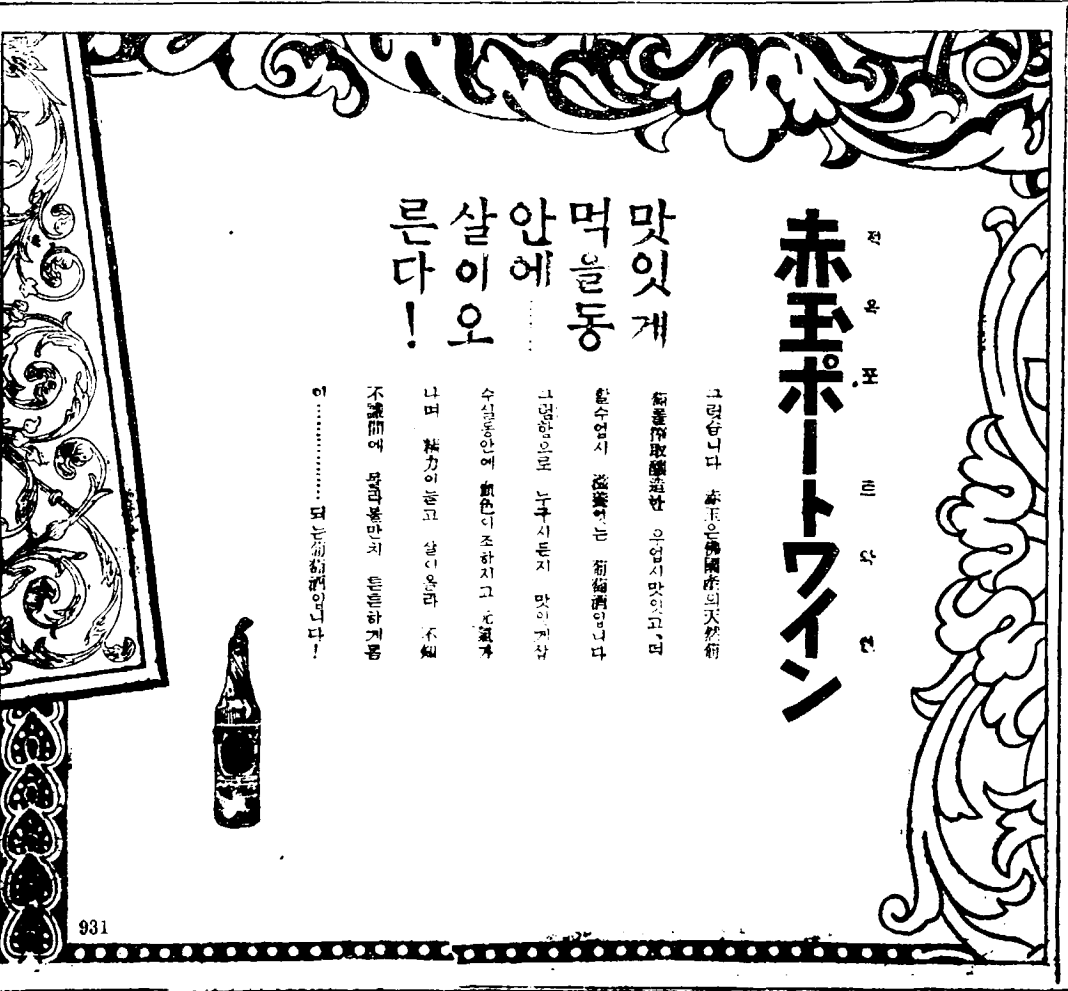 赤玉ポートワイン
적옥포트와인
맛잇게
먹을동
안에……
살이오
른다!
그럿습니다 赤玉은佛國產의天然葡
萄를搾取釀造한 우업시맛잇고, 더
할수업시 滋養잇는 葡萄酒입니다
그럼함으로 누구시든지 맛잇게삽
수실동안에 血色이조하지고 元氣가
나며 精力이늘고 살이올라 不知
不識間에 몰라볼만치 튼튼하게몸
이……………되는葡萄酒입니다!
931